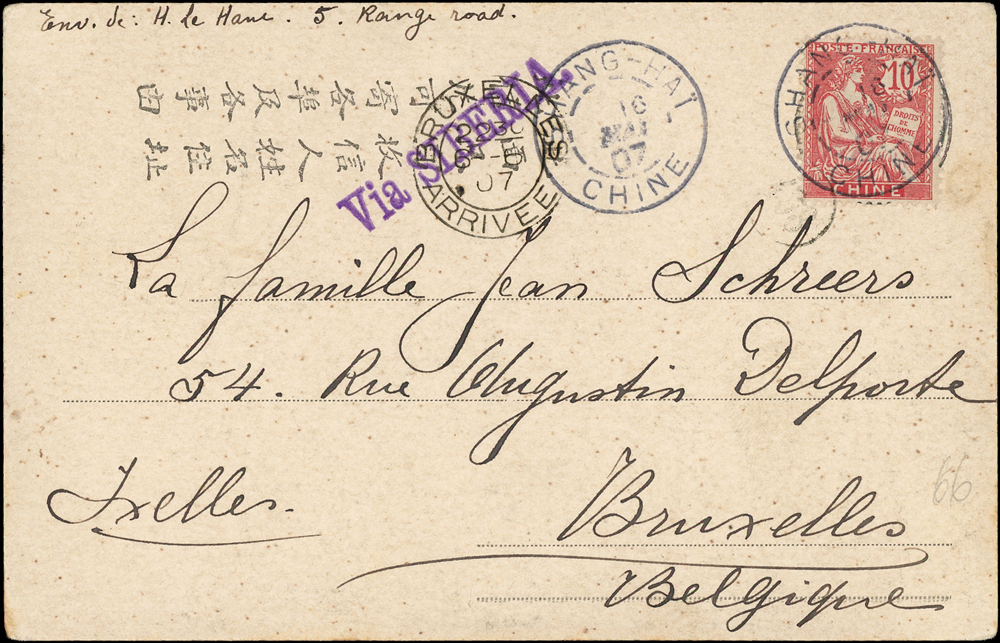 Env. de: H. Le Hane. 5. Range road.
可寄各埠及各事由
收信人姓名住址
Via SIBERIA.
BRUXELLES
07
ARRIVEE
SHANG-HAÏ
16
MAI
07
CHINE
POSTE FRANÇAISE
10
DROITS
DE
L'HOMME
CHINE
SHANG-HAÏ
16
CHINE
La famille Jean Schreers
54. Rue Augustin Delporte
Ixelles.
Bruxelles
Belgique
66